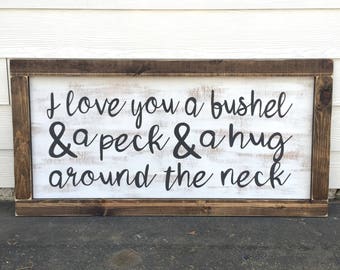 I love you a bushel
& a peck & a hug
around the neck